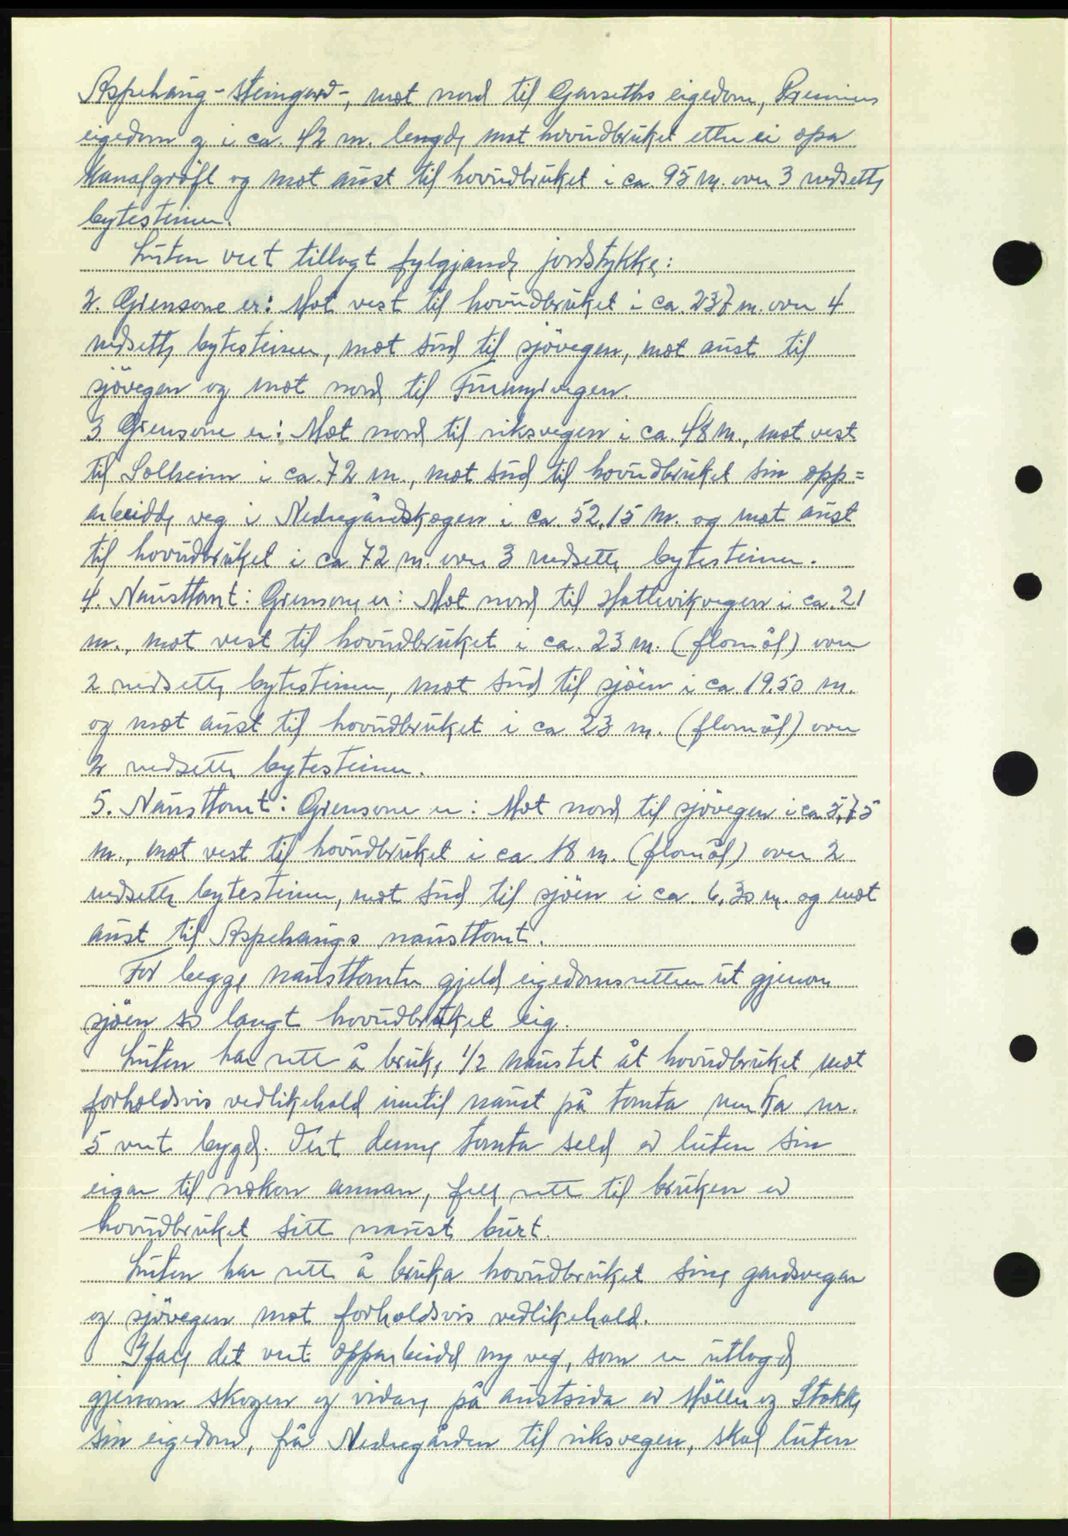 Aspehaug - steingard -, mot nord til Garseths eigedom,
eigedom og i ca. 42 m. lengde mot hovudbruket etter ei opa
kanalgrøft og mot aust til hovudbruket i ca. 95 m. over 3 nedsette
bytesteinar.
Luten vert tillagt fylgjande jordstykke:
2. Grensone er: Mot vest til hovudbruket i ca. 237 m. over 4
nedsette bytesteinar, mot sud til sjövegen, mot aust til
sjövegen og mot nord til
3 Grensone er: Mot nord til riksvegen i ca. 48 m., mot vest
til Solheim i ca. 72 m., mot sud til hovudbruket sin opp=
arbeidde veg i Nedregårdskogen i ca 52,15 m. og mot aust
til hovudbruket i ca 72 m. over 3 nedsette bytesteinar.
4. Nausttomt: Grensone er: Mot nord til Hattevikvegen i ca. 21
m., mot vest til hovudbruket i ca. 23 m. (flomål) over
2 nedsette bytesteinar, mot sud til sjöen i ca. 19.50 m.
og mot aust til hovudbruket i ca 23 m. (flomål) over
2 nedsette bytesteinar.
5. Nausttomt: Grensone er: Mot nord til sjövegen i ca 5,75
m., mot vest til hovudbruket i ca 18 m. (flomål) over 2
nedsette bytesteinar, mot sud til sjöen i ca. 6,30 m. og mot
aust til Aspehaugs nausttomt.
For begge nausttomter gjeld eigedomsretten ut gjenom
sjöen so langt hovudbruket eig.
Luten har rett å bruke 1/2 naustet åt hovudbruket mot
forholdsvis vedlikehald inntil naust på tomta merka nr.
5 vert bygd. Vert denne tomta seld av luten sin
eigar til nokon annan, fell rett til bruken av
hovudbruket sitt naust burt.
Luten har rett å bruka hovudbruket sine gardsvegar
og sjövegen mot forholdsvis vedlikehald.
Ifall det vert opparbeidd ny veg, som er utlagd
gjenom skogen og vidare på austsida av Höller og Stokke
sin eigedom, frå Nedregården til riksvegen, skal luten